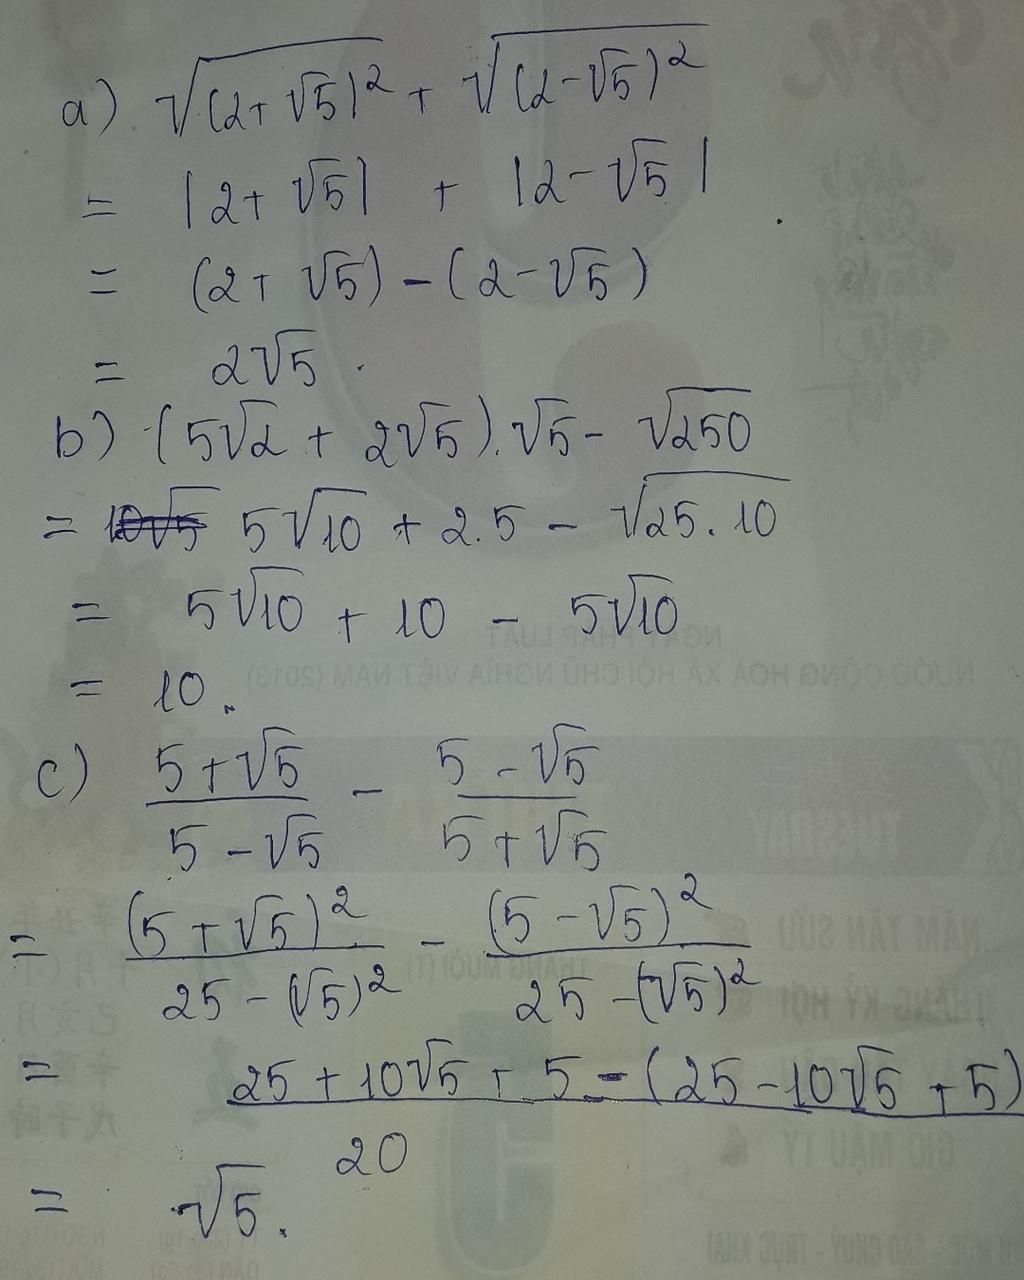 a) √(2+√5)² + √(2-√5)²
= |2+√5| + |2-√5|
= (2+√5) - (2-√5)
= 2√5.
b) (5√2 + 2√5).√5 - √250
= 5√10 + 2.5 - √25.10
= 5√10 + 10 - 5√10
= 10.
c) (5+√5)/(5-√5) - (5-√5)/(5+√5)
= (5+√5)²/(25-(√5)²) - (5-√5)²/(25-(√5)²)
= (25+10√5+5-(25-10√5+5))/20
= √5.
NGÀY PHÁP LUẬT
NƯỚC CỘNG HOÀ XÃ HỘI CHỦ NGHĨA VIỆT NAM (2013)
TUESDAY
NĂM TÂN SỬU
THÁNG MƯỜI (T)
THÁNG KỶ HỢI
GIỜ MẬU TÝ